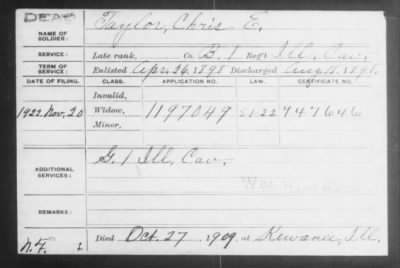 DEAD
NAME OF SOLDIER: Taylor, Chris E.
SERVICE: Late rank, Co. B. 1 Reg't Ill. Cav.
TERM OF SERVICE: Enlisted Apr. 26, 1898 Discharged Aug. 11, 1898.
DATE OF FILING. CLASS. APPLICATION NO. LAW. CERTIFICATE NO.
Invalid,
1922. Nov. 20 Widow, 1197049 947646
Minor,
ADDITIONAL SERVICES: G. 1 Ill. Cav.
REMARKS:
Died Oct. 27, 1909, at Kewanee, Ill.